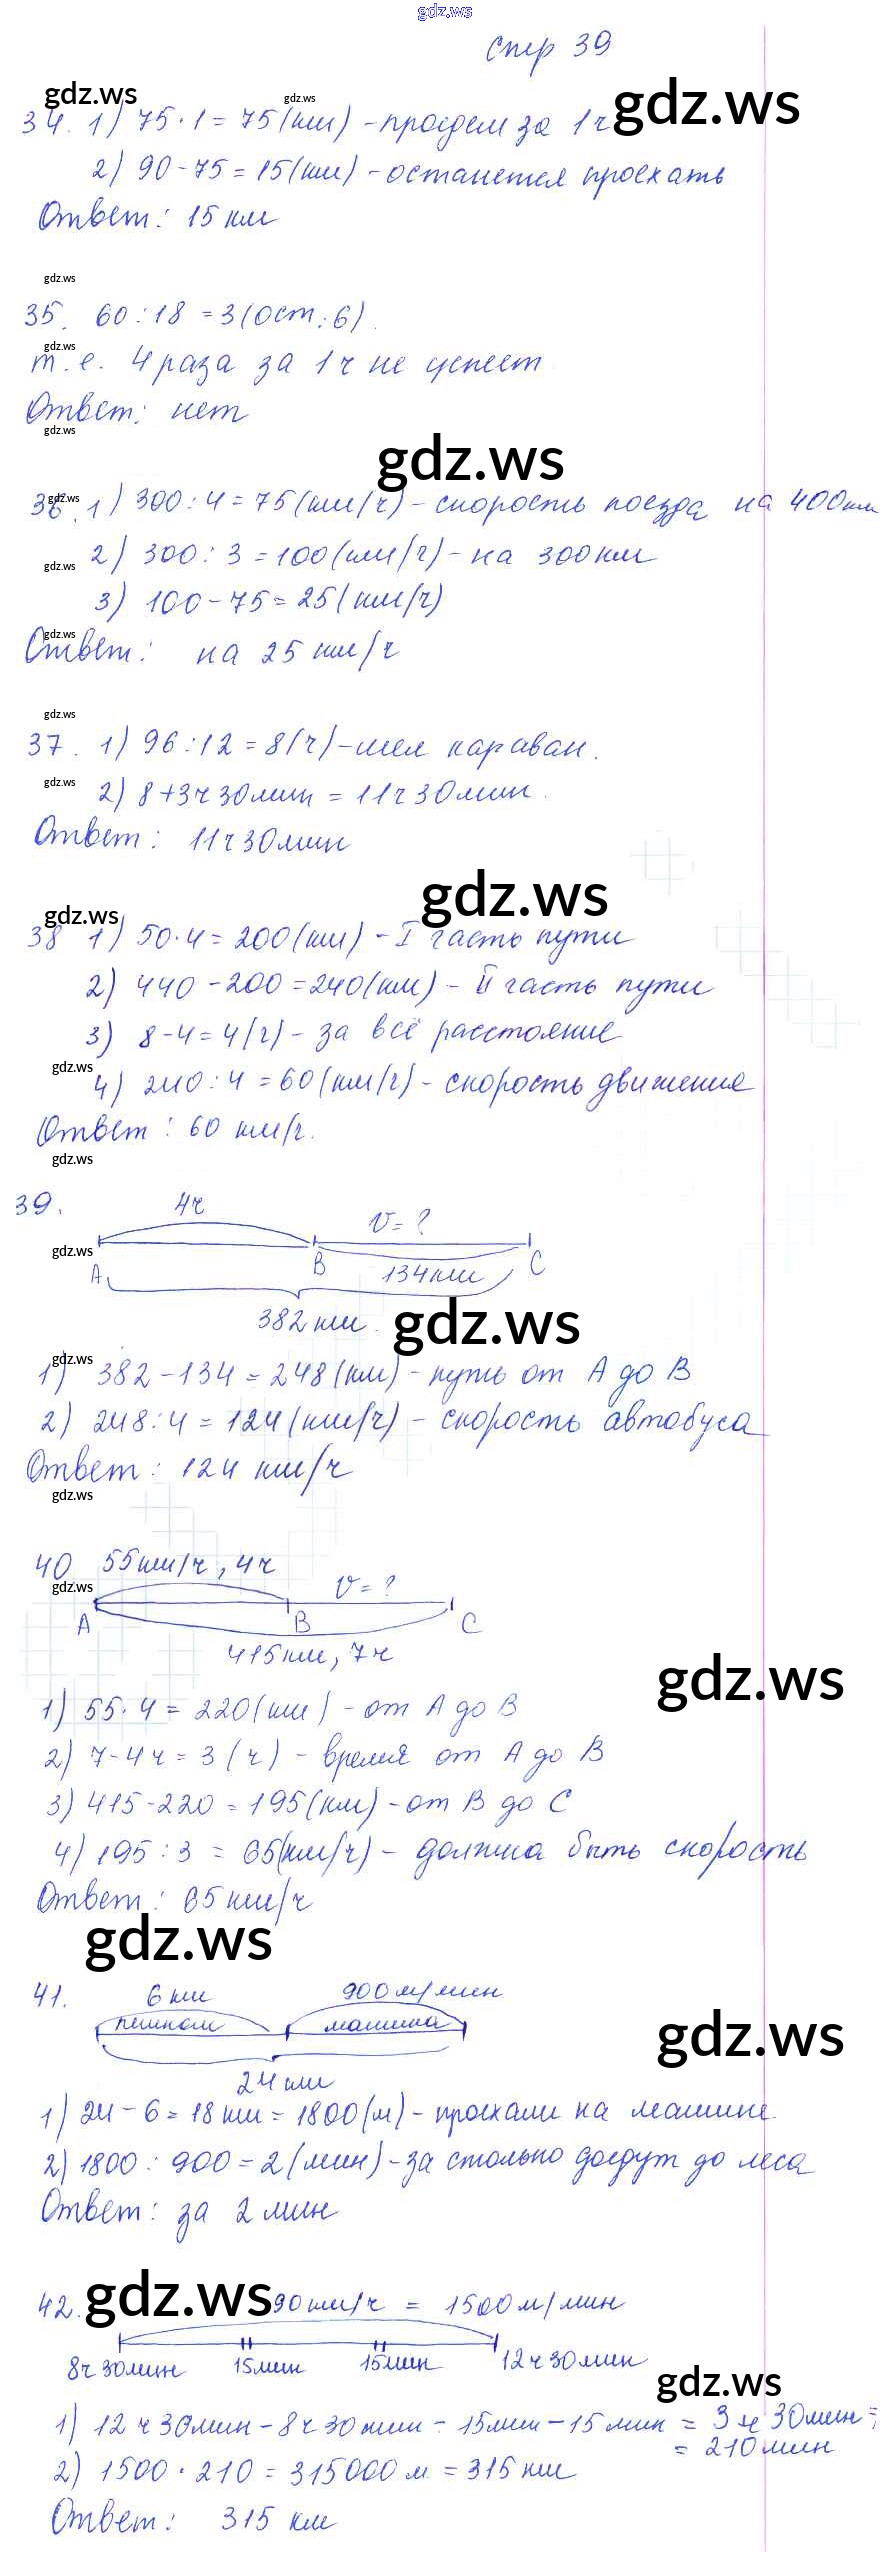 gdz.ws
стр 39
gdz.ws gdz.ws gdz.ws
34. 1) 75·1 = 75(км) - проедем за 1ч
2) 90-75 = 15(км) - останется проехать
Ответ: 15 км
gdz.ws
35. 60:18 = 3(ост.6).
gdz.ws
т.е. 4 раза за 1ч не успеет
Ответ: нет
gdz.ws
gdz.ws
gdz.ws
36. 1) 300:4 = 75(км/ч) - скорость поезда на 400км
2) 300:3 = 100(км/ч) - на 300км
gdz.ws
3) 100-75 = 25(км/ч)
gdz.ws
Ответ: на 25 км/ч
gdz.ws
37. 1) 96:12 = 8(ч) - шел караван.
gdz.ws
2) 8+3ч30мин = 11ч30мин.
Ответ: 11ч30мин
gdz.ws
gdz.ws
38 1) 50·4 = 200(км) - I часть пути
2) 440-200 = 240(км) - II часть пути
3) 8-4 = 4(ч) - за всё расстояние
gdz.ws
4) 240:4 = 60(км/ч) - скорость движения
Ответ: 60 км/ч.
gdz.ws
39. 4ч
v=?
gdz.ws
A B C
134км
382км.
gdz.ws
gdz.ws
1) 382-134 = 248(км) - путь от А до В
2) 248:4 = 124(км/ч) - скорость автобуса
Ответ: 124 км/ч
gdz.ws
40 55км/ч, 4ч
gdz.ws
v=?
A B C
415км, 7ч
gdz.ws
1) 55·4 = 220(км) - от А до В
2) 7-4ч = 3(ч) - время от А до В
3) 415-220 = 195(км) - от В до С
4) 195:3 = 65(км/ч) - должна быть скорость
Ответ: 65км/ч
gdz.ws
41. 6км 900м/мин
пешком машина
gdz.ws
24км
1) 24-6 = 18км = 1800(м) - проехали на машине.
2) 1800:900 = 2(мин) - за столько доедут до леса
Ответ: за 2мин
gdz.ws
42. 90км/ч = 1500м/мин
8ч30мин 15мин 15мин 12ч30мин
gdz.ws
1) 12ч30мин - 8ч30мин - 15мин - 15мин = 3ч30мин =
= 210мин
2) 1500·210 = 315000м = 315км
Ответ: 315 км